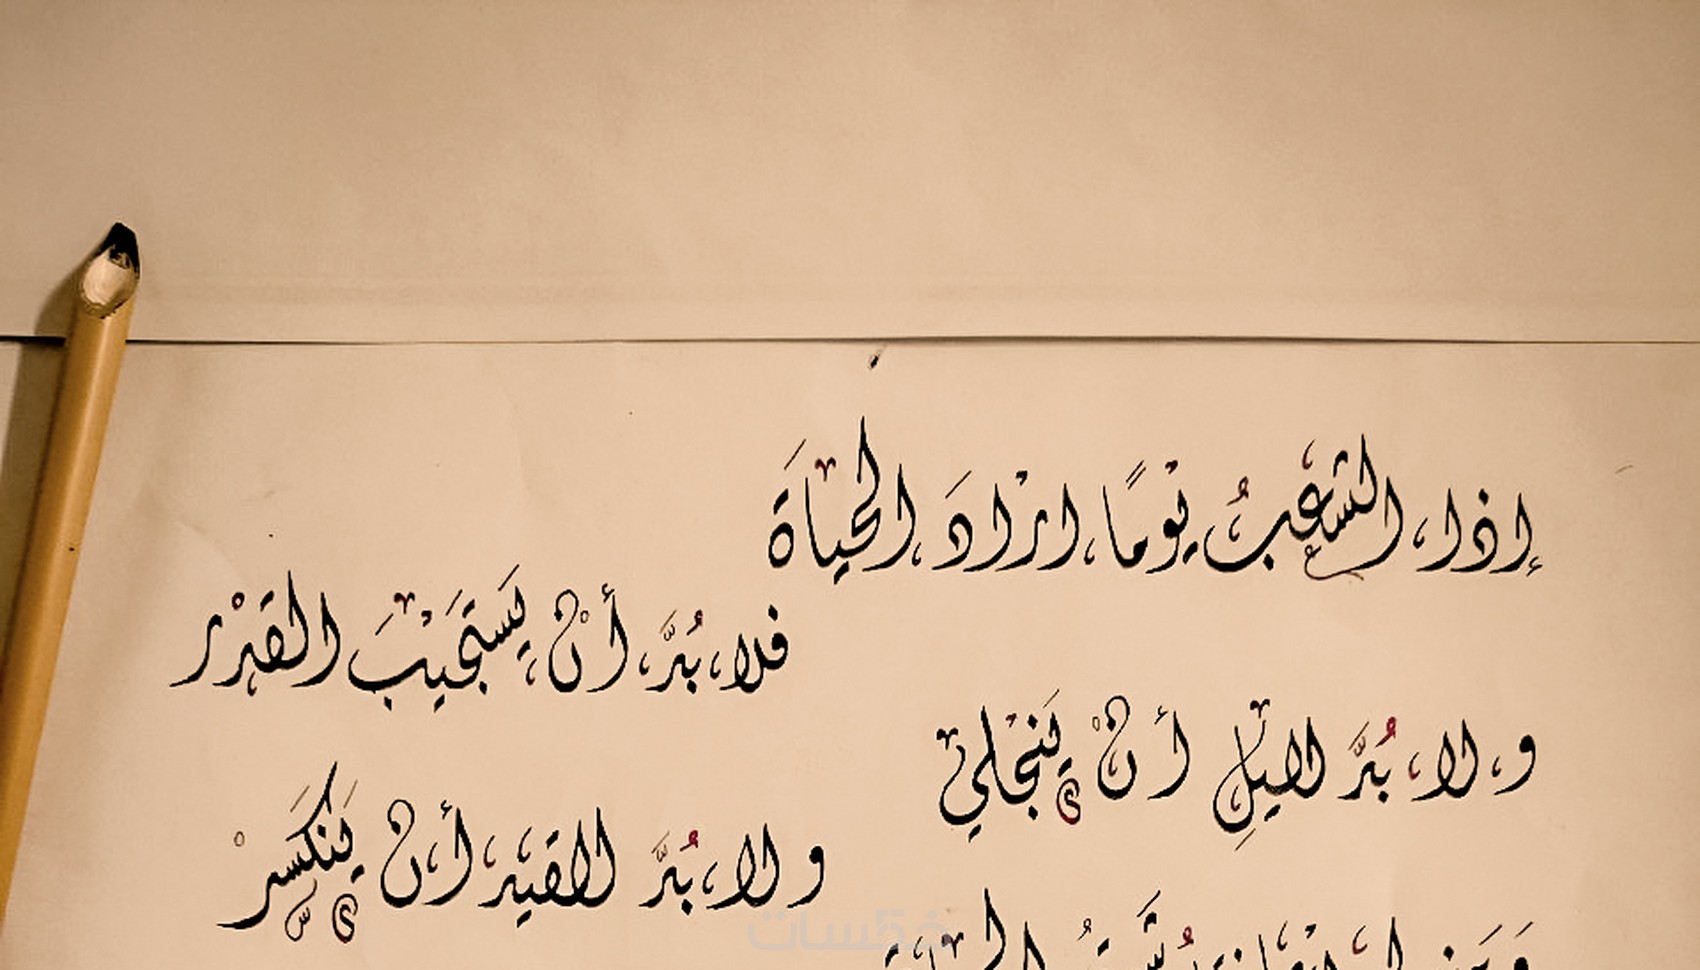 إذا الشعبُ يوْمًا ارْادَ الحيْاةَ
فلا بُدَّ أنْ يَستَجيْبَ القدْر
و لا بُدَّ اليلِ أنْ يَنجلي
و لا بُدَّ القيد أنْ يَنكَسرْ
خمسات